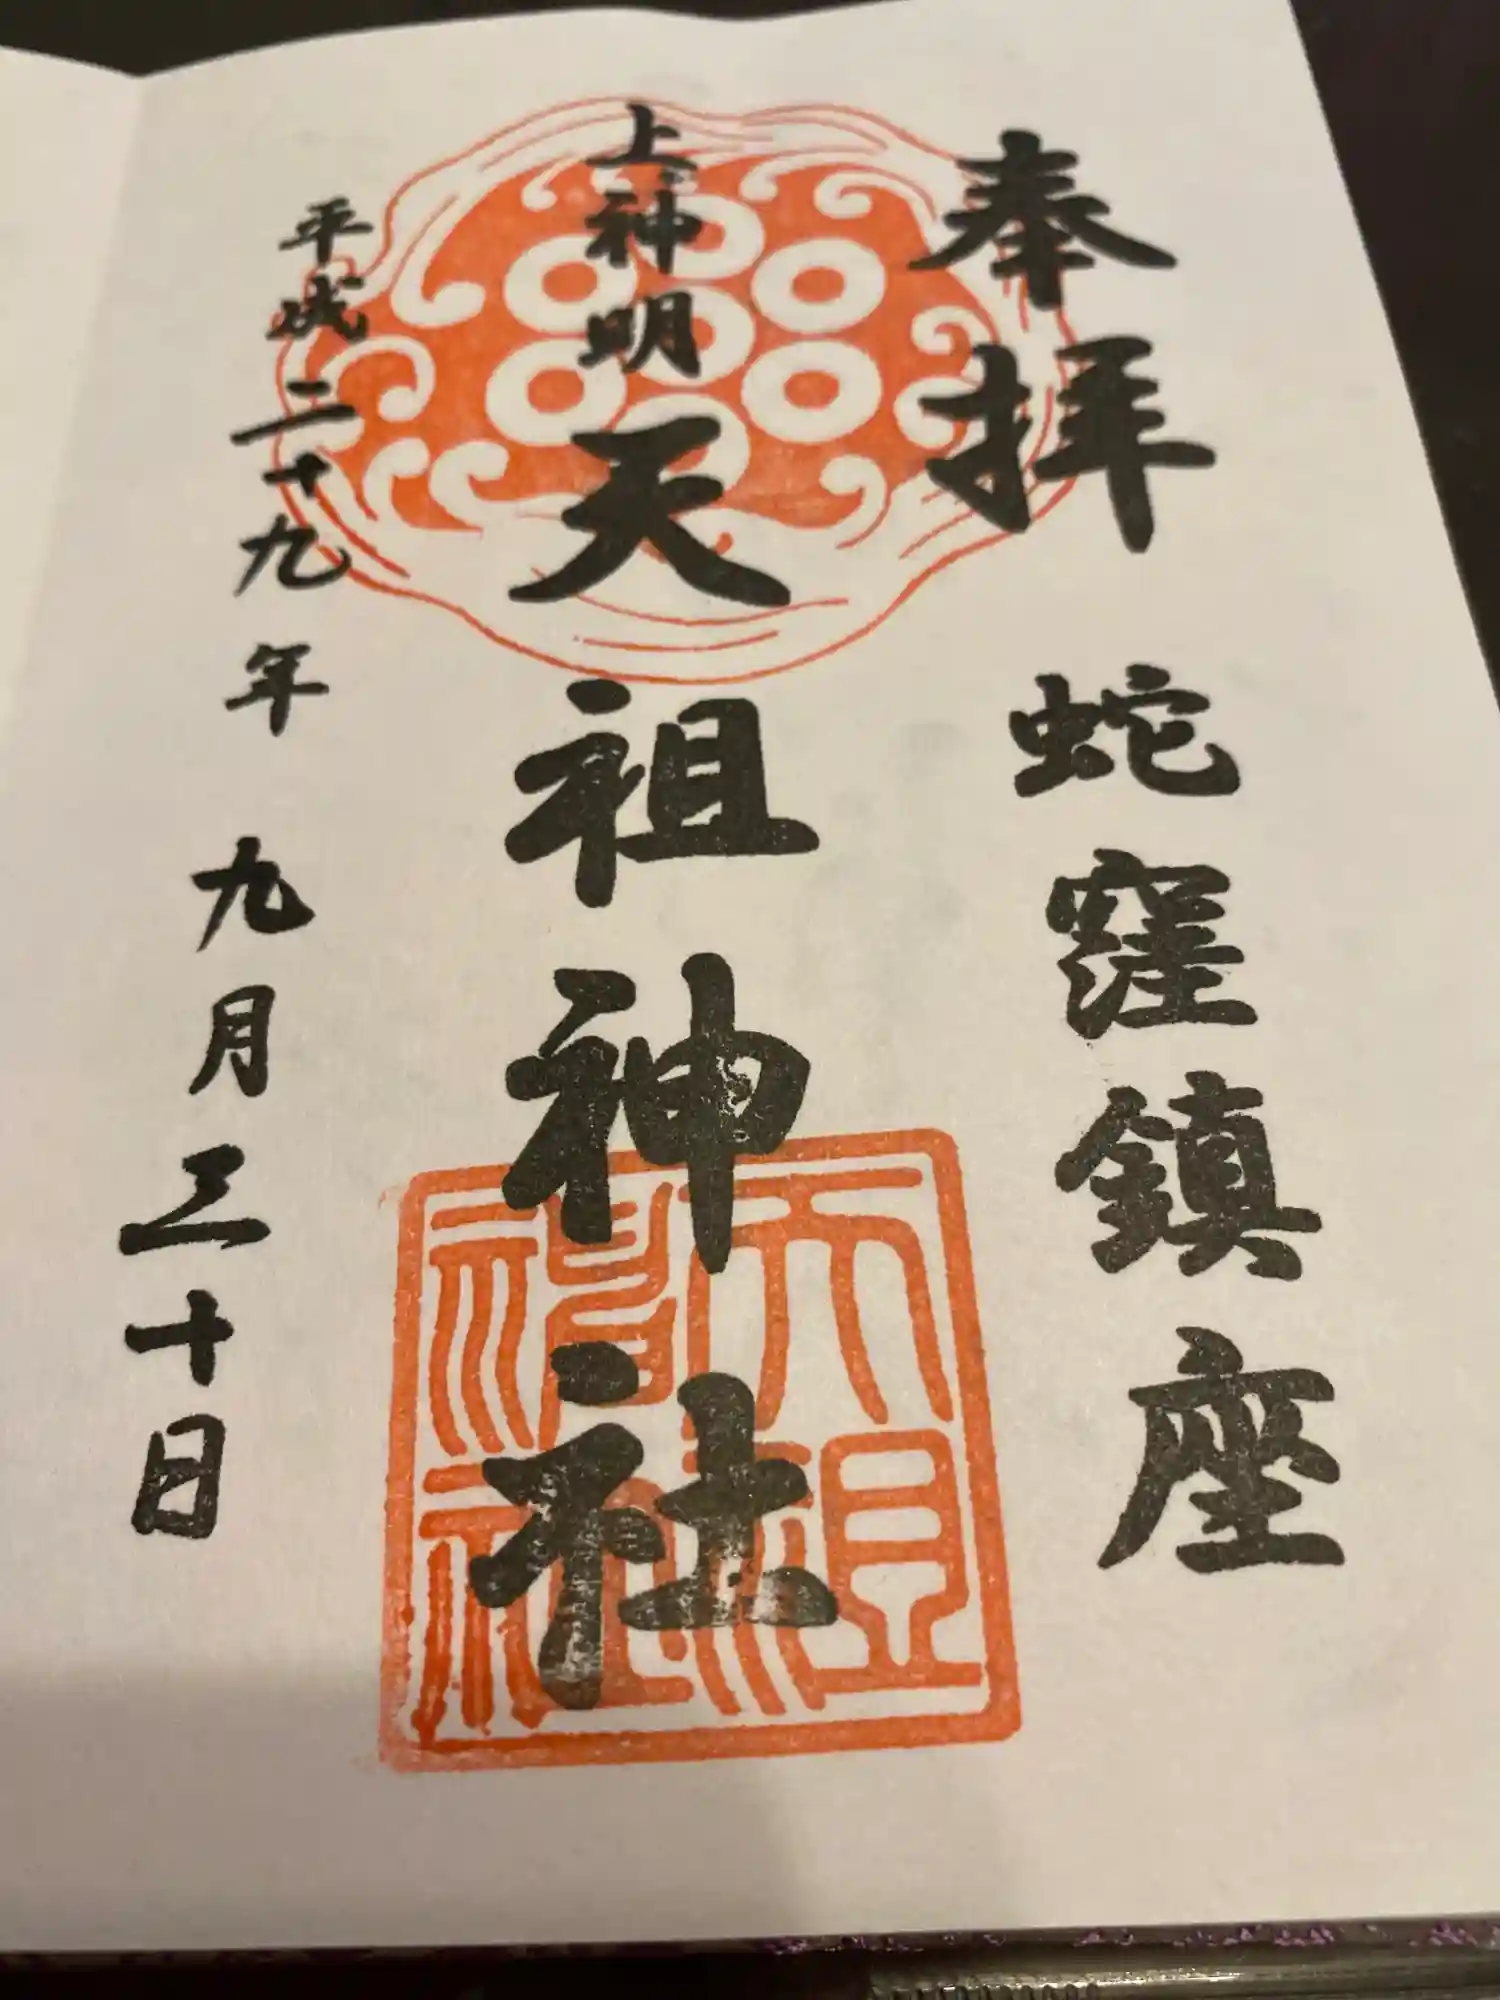 奉拝
蛇窪鎮座
上神明
天祖神社
平成二十九年九月三十日
天祖
神社